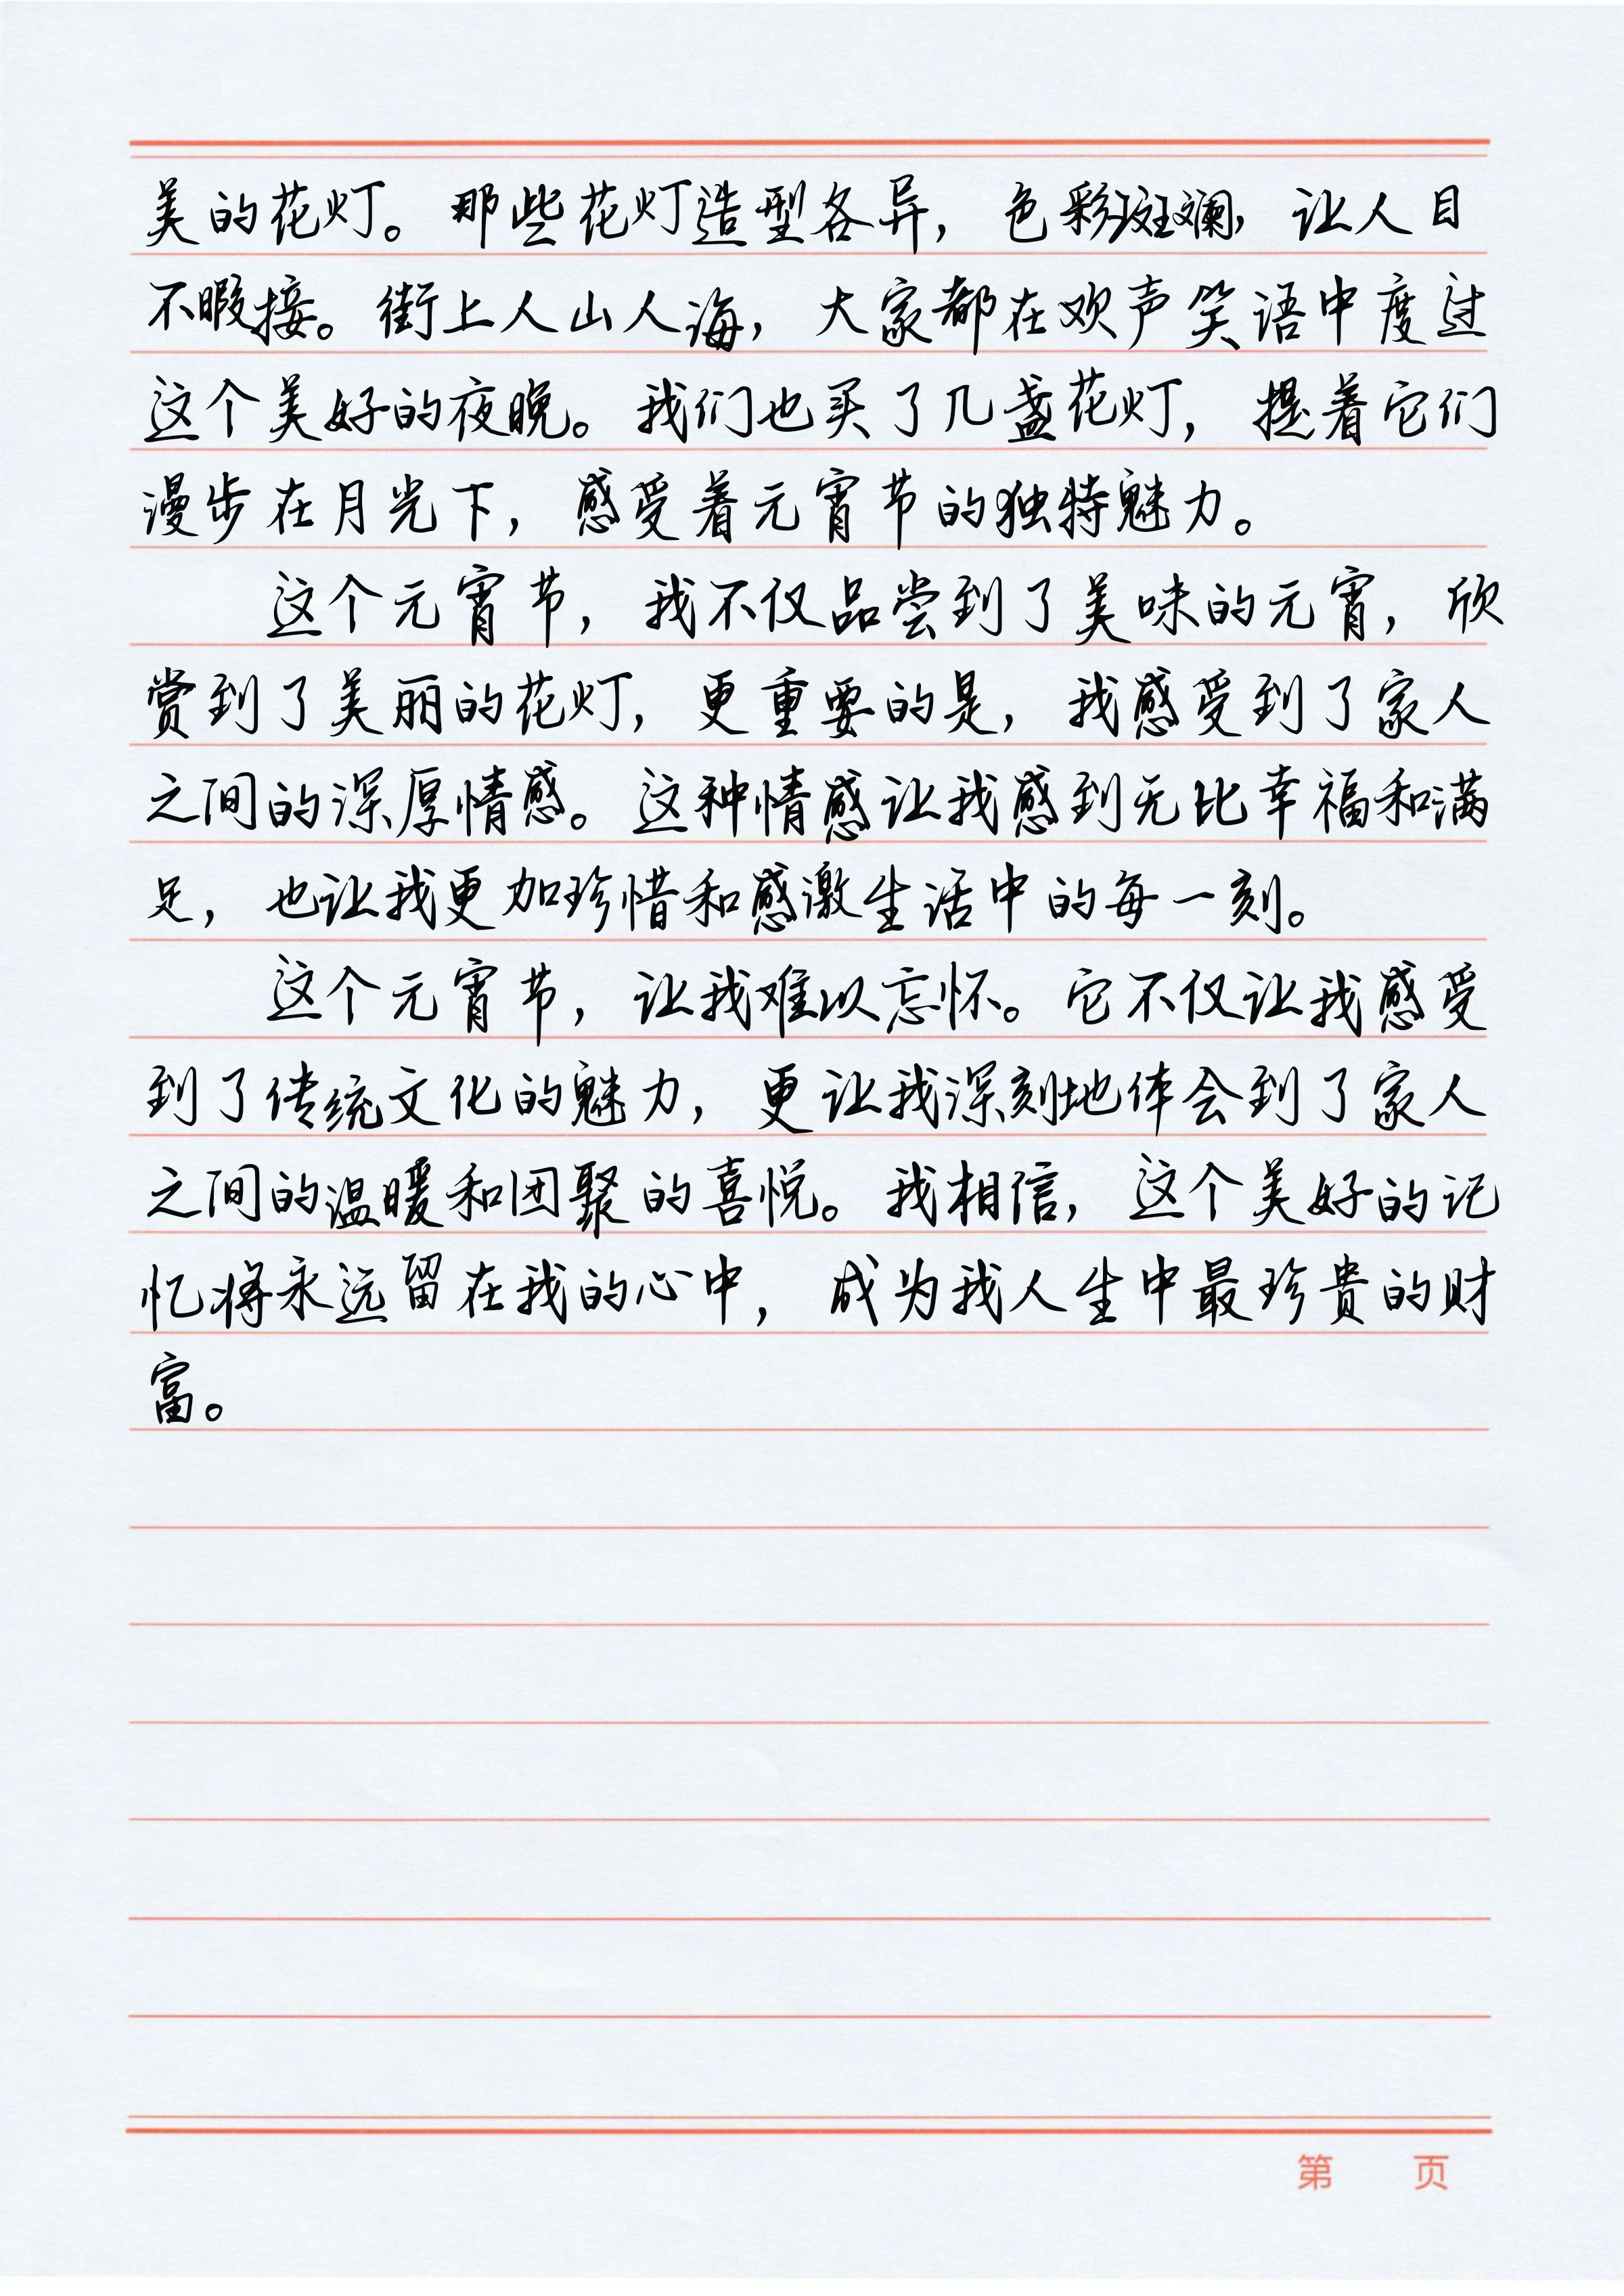 美的花灯。那些花灯造型各异，色彩斑斓，让人目
不暇接。街上人山人海，大家都在欢声笑语中度过
这个美好的夜晚。我们也买了几盏花灯，提着它们
漫步在月光下，感受着元宵节的独特魅力。
这个元宵节，我不仅品尝到了美味的元宵，欣
赏到了美丽的花灯，更重要的是，我感受到了家人
之间的深厚情感。这种情感让我感到无比幸福和满
足，也让我更加珍惜和感激生活中的每一刻。
这个元宵节，让我难以忘怀。它不仅让我感受
到了传统文化的魅力，更让我深刻地体会到了家人
之间的温暖和团聚的喜悦。我相信，这个美好的记
忆将永远留在我的心中，成为我人生中最珍贵的财
富。
第 页